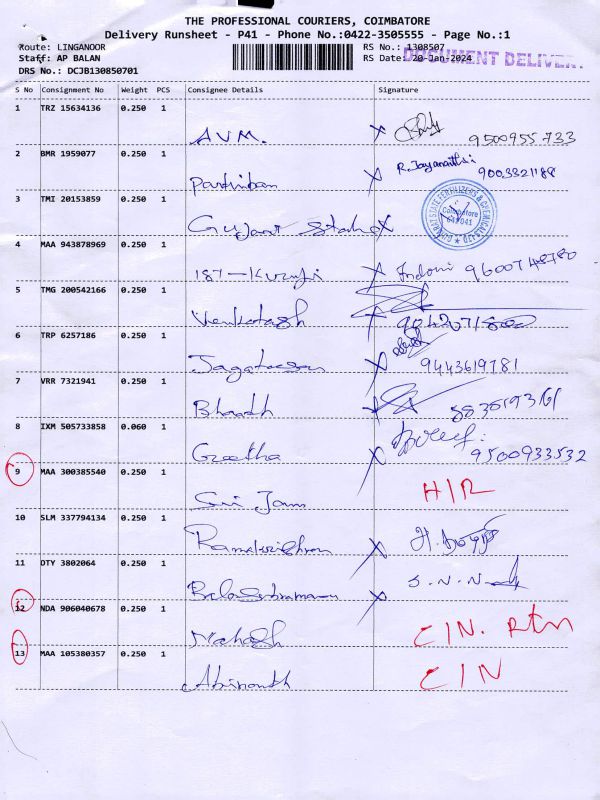 THE PROFESSIONAL COURIERS, COIMBATORE
Delivery Runsheet - P41 - Phone No.:0422-3505555 - Page No.:1
Route: LINGANOOR RS No.: 1308507
Staff: AP BALAN RS Date: 20-Jan-2024
DOCUMENT DELIVER
DRS No.: DCJB130850701
S No Consignment No Weight PCS Consignee Details Signature
1 TRZ 15634136 0.250 1
AVM. X 9500955733
2 BMR 1959077 0.250 1
Parthiban X R. Jayananthi 9003321188
3 TMI 20153859 0.250 1
Gujarat State X
GUJARAT STATE FERTILIZERS & CHEMICALS LTD
Coimbatore
641 041
4 MAA 943878969 0.250 1
187-Kurinji X Indoni 9600748780
5 TMG 200542166 0.250 1
Venkatesh X
6 TRP 6257186 0.250 1
Jagateesan X 9443619781
7 VRR 7321941 0.250 1
Bharath X
8 IXM 505733858 0.060 1
Geetha X 9500933532
9 MAA 300385540 0.250 1
Sri Jam H/R
10 SLM 337794134 0.250 1
Ramakrishnan X
11 DTY 3802064 0.250 1
Balasubramani X
12 NDA 906040678 0.250 1
Mahesh C/N. Rtn
13 MAA 105380357 0.250 1
Abinanth C/N